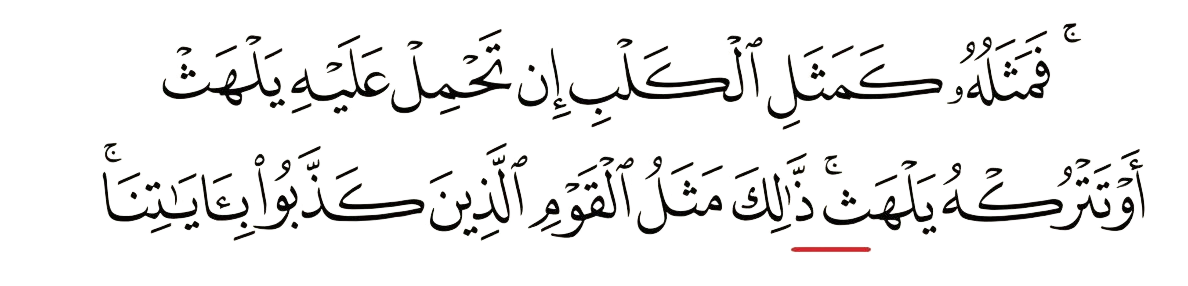 ۚ فَمَثَلُهُۥ كَمَثَلِ ٱلْكَلْبِ إِن تَحْمِلْ عَلَيْهِ يَلْهَثْ
أَوْ تَتْرُكْهُ يَلْهَث ۚ ذَّٰلِكَ مَثَلُ ٱلْقَوْمِ ٱلَّذِينَ كَذَّبُوا۟ بِـَٔايَـٰتِنَا ۚ